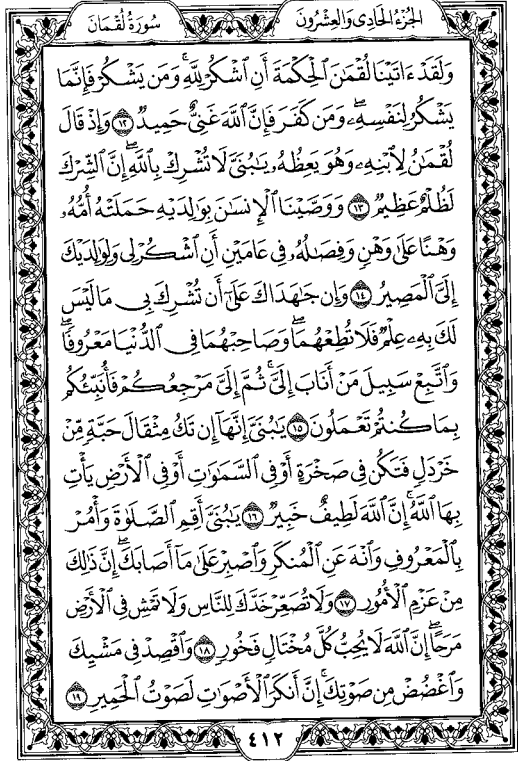 سُورَةُ لُقْمَانَ
الجُزْءُ الحَادِى وَالعِشْرُونَ
وَلَقَدْ ءَاتَيْنَا لُقْمَٰنَ ٱلْحِكْمَةَ أَنِ ٱشْكُرْ لِلَّهِۚ وَمَن يَشْكُرْ فَإِنَّمَا
يَشْكُرُ لِنَفْسِهِۦۖ وَمَن كَفَرَ فَإِنَّ ٱللَّهَ غَنِىٌّ حَمِيدٌ ١٢ وَإِذْ قَالَ
لُقْمَٰنُ لِٱبْنِهِۦ وَهُوَ يَعِظُهُۥ يَٰبُنَىَّ لَا تُشْرِكْ بِٱللَّهِۖ إِنَّ ٱلشِّرْكَ
لَظُلْمٌ عَظِيمٌ ١٣ وَوَصَّيْنَا ٱلْإِنسَٰنَ بِوَٰلِدَيْهِ حَمَلَتْهُ أُمُّهُۥ
وَهْنًا عَلَىٰ وَهْنٍ وَفِصَٰلُهُۥ فِى عَامَيْنِ أَنِ ٱشْكُرْ لِى وَلِوَٰلِدَيْكَ
إِلَىَّ ٱلْمَصِيرُ ١٤ وَإِن جَٰهَدَاكَ عَلَىٰٓ أَن تُشْرِكَ بِى مَا لَيْسَ
لَكَ بِهِۦ عِلْمٌ فَلَا تُطِعْهُمَاۖ وَصَاحِبْهُمَا فِى ٱلدُّنْيَا مَعْرُوفًاۖ
وَٱتَّبِعْ سَبِيلَ مَنْ أَنَابَ إِلَىَّۚ ثُمَّ إِلَىَّ مَرْجِعُكُمْ فَأُنَبِّئُكُم
بِمَا كُنتُمْ تَعْمَلُونَ ١٥ يَٰبُنَىَّ إِنَّهَآ إِن تَكُ مِثْقَالَ حَبَّةٍ مِّنْ
خَرْدَلٍ فَتَكُن فِى صَخْرَةٍ أَوْ فِى ٱلسَّمَٰوَٰتِ أَوْ فِى ٱلْأَرْضِ يَأْتِ
بِهَا ٱللَّهُۚ إِنَّ ٱللَّهَ لَطِيفٌ خَبِيرٌ ١٦ يَٰبُنَىَّ أَقِمِ ٱلصَّلَوٰةَ وَأْمُرْ
بِٱلْمَعْرُوفِ وَٱنْهَ عَنِ ٱلْمُنكَرِ وَٱصْبِرْ عَلَىٰ مَآ أَصَابَكَۖ إِنَّ ذَٰلِكَ
مِنْ عَزْمِ ٱلْأُمُورِ ١٧ وَلَا تُصَعِّرْ خَدَّكَ لِلنَّاسِ وَلَا تَمْشِ فِى ٱلْأَرْضِ
مَرَحًاۖ إِنَّ ٱللَّهَ لَا يُحِبُّ كُلَّ مُخْتَالٍ فَخُورٍ ١٨ وَٱقْصِدْ فِى مَشْيِكَ
وَٱغْضُضْ مِن صَوْتِكَۚ إِنَّ أَنكَرَ ٱلْأَصْوَٰتِ لَصَوْتُ ٱلْحَمِيرِ ١٩
٤١٢